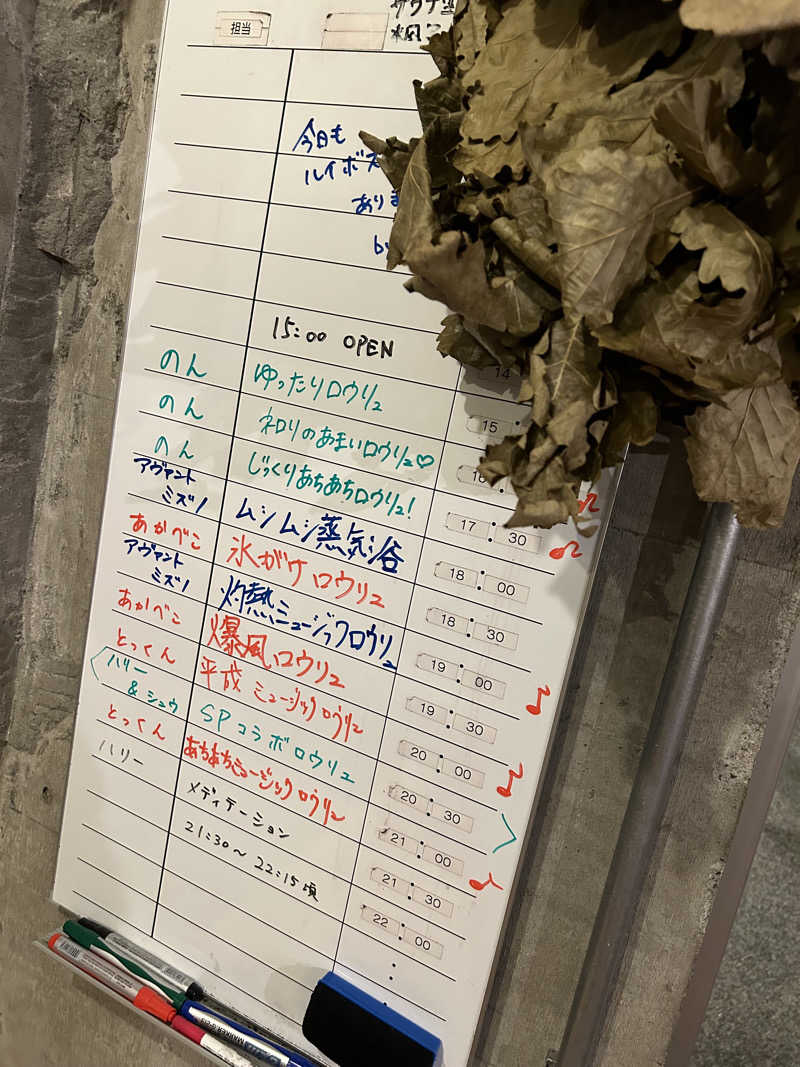 担当
サウナ
今日も
ルイボス
あり
by
15:00 OPEN 14
のん ゆったりロウリュ 15
のん ネロリのあまいロウリュ♡ 16
のん じっくりあちあちロウリュ! 17:30
アヴァント
ミズノ ムシムシ蒸気浴 18:00
あかべこ 氷がけロウリュ 18:30
アヴァント
ミズノ 灼熱ミュージックロウリュ 19:00
あかべこ 爆風ロウリュ 19:30
とっくん 平成ミュージックロウリュ 20:00
ハリー
&シュウ SPコラボロウリュ 20:30
とっくん あちあちミュージックロウリュ 21:00
ハリー メディテーション 21:30
21:30~22:15頃 22:00